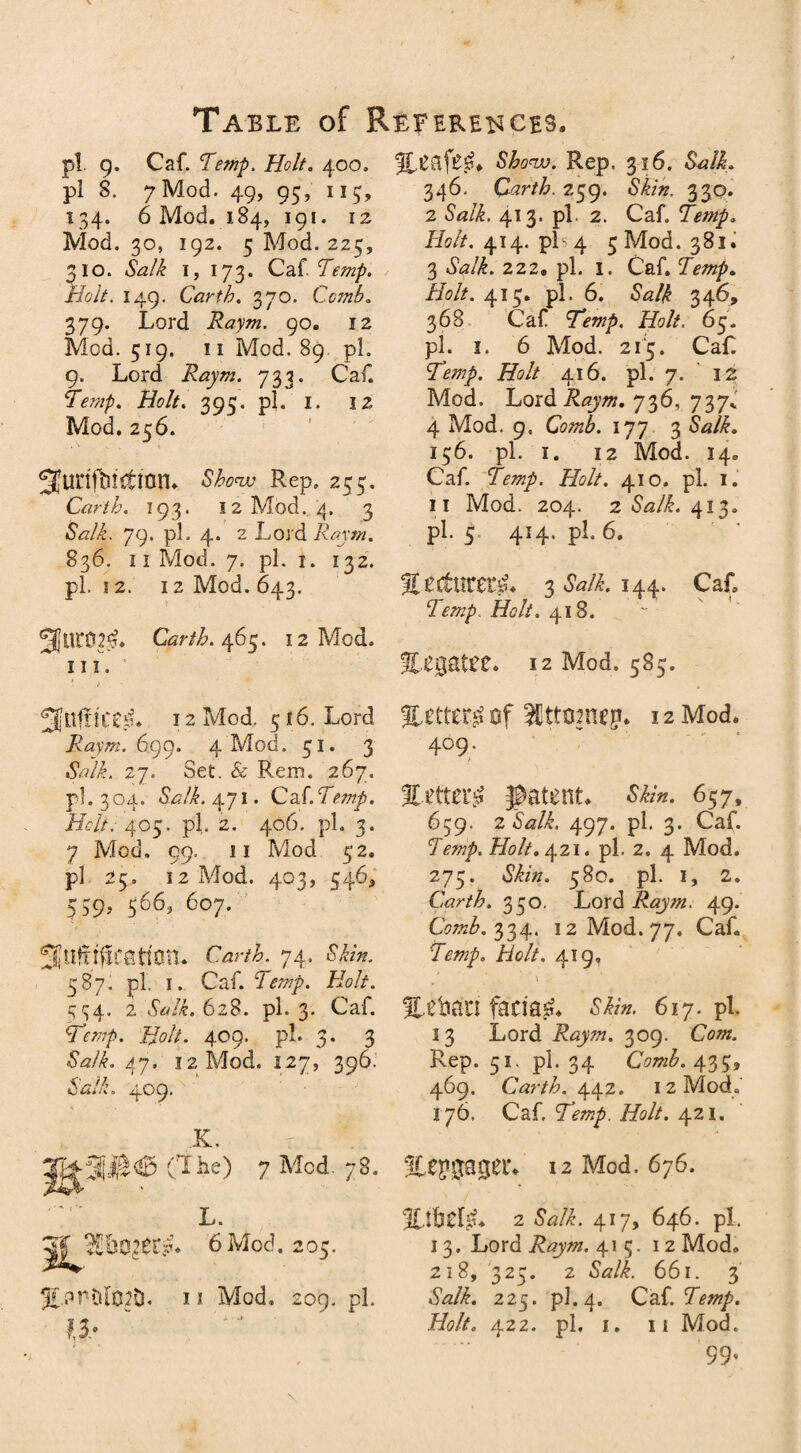 TABLE of REFERENCES.
pl. 9. Caſ. Temp. Holt. 400.
pl 8. 7 Mod. 49, 95, 115,
134. 6 Mod. 184, 191. 12
Mod. 30, 192. 5 Mod. 225,
310. Salk 1, 173. Caſ. Temp.
Holt. 149. Carth. 370. Comb.
379. Lord Raym. 90. 12
Mod. 519. 11 Mod. 89. pl.
9. Lord Raym. 733. Caſ.
Temp. Holt. 395. pl. 1. 12
Mod. 256.
Juriſdiction. Show Rep. 255.
Carth. 193. 12 Mod. 4. 3
Salk. 79. pl. 4. 2 Lord Raym.
836. 11 Mod. 7. pl. 1. 132.
pl. 12. 12 Mod. 643.
Jurors. Carth. 465. 12 Mod.
111.
Juſtices. 12 Mod. 516. Lord
Raym. 699. 4 Mod. 51. 3
Salk. 27. Set. & Rem. 267.
pl. 304. Salk. 471. Caſ. Temp.
Holt. 405. pl. 2. 406. pl. 3.
7 Mod. 99. 11 Mod 52.
pl 25. 12 Mod. 403, 546,
559, 566, 607.
Juſtification. Carth. 74. Skin.
587. pl. 1. Caſ. Temp. Holt.
554. 2 Salk. 628. pl. 3. Caſ.
Temp. Holt. 409. pl. 3. 3
Salk. 47. 12 Mod. 127, 396.
Salk. 409.
K.
KING (The) 7 Mod. 78.
L.
Laborers. 6 Mod. 205.
Landlord. 11 Mod. 209. pl.
13.
Leaſes. Show. Rep. 316. Salk.
346. Carth. 259. Skin. 330.
2 Salk. 413. pl. 2. Caſ. Temp.
Holt. 414. pl. 4 5 Mod. 381.
3 Salk. 222. pl. 1. Caſ. Temp.
Holt. 415. pl. 6. Salk 346,
368 Caſ. Temp. Holt. 65.
pl. 1. 6 Mod. 215. Caſ.
Temp. Holt 416. pl. 7. 12
Mod. Lord Raym. 736, 737.
4 Mod. 9. Comb. 177 3 Salk.
156. pl. 1. 12 Mod. 14.
Caſ. Temp. Holt. 410. pl. 1.
11 Mod. 204. 2 Salk. 413.
pl. 5 414. pl. 6.
Lecturers. 3 Salk. 144. Caſ.
Temp. Holt. 418.
Legatee. 12 Mod. 585.
Letters of Attorney. 12 Mod.
409.
Letters Patent. Skin. 657,
659. 2 Salk. 497. pl. 3. Caſ.
Temp. Holt. 421. pl. 2. 4 Mod.
275. Skin. 580. pl. 1, 2.
Carth. 350. Lord Raym. 49.
Comb. 334. 12 Mod. 77. Caſ.
Temp. Holt. 419.
Levari facias. Skin. 617. pl.
13 Lord Raym. 309. Com.
Rep. 51. pl. 34 Comb. 435,
469. Carth. 442. 12 Mod.
176. Caſ. Temp. Holt. 421.
Leygager. 12 Mod. 676.
Libels. 2 Salk. 417, 646. pl.
13. Lord Raym. 415. 12 Mod.
218, 325. 2 Salk. 661. 3
Salk. 225. pl. 4. Caſ. Temp.
Holt. 422. pl. 1. 11 Mod.
99.